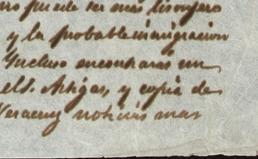 puede ser mas lisongero
y la probable inmigracion
Incluso encontrarás un
els. Artigas, y copia de
Veracruz noticias mas